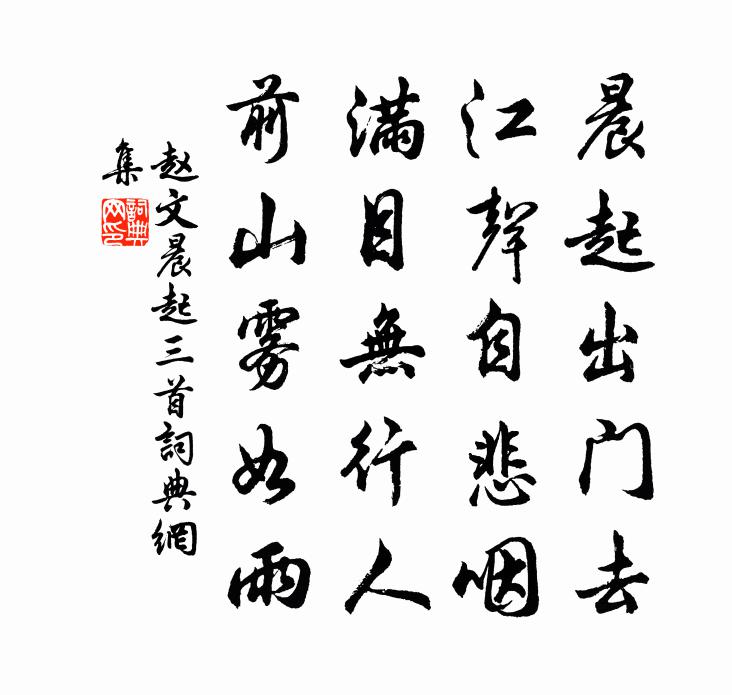 晨起出门去
江聲自悲咽
滿目無行人
前山雾如雨
赵文晨起三首詞典網
集
詞典网印